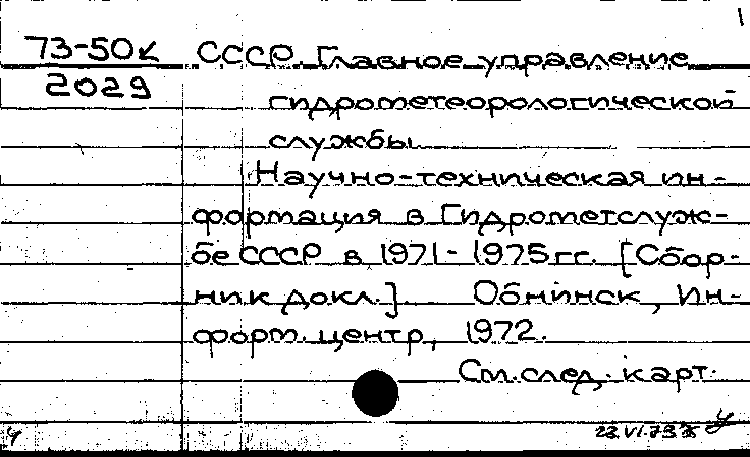 1
73-50к СССР. Главное управление
2029
гидрометеорологической
службы.
Научно-техническая ин-
формация в Гидрометслуж-
бе СССР в 1971-1975гг. [Сбор-
ник докл.] Обнинск, Ин-
форм. центр, 1972.
См. след. карт.